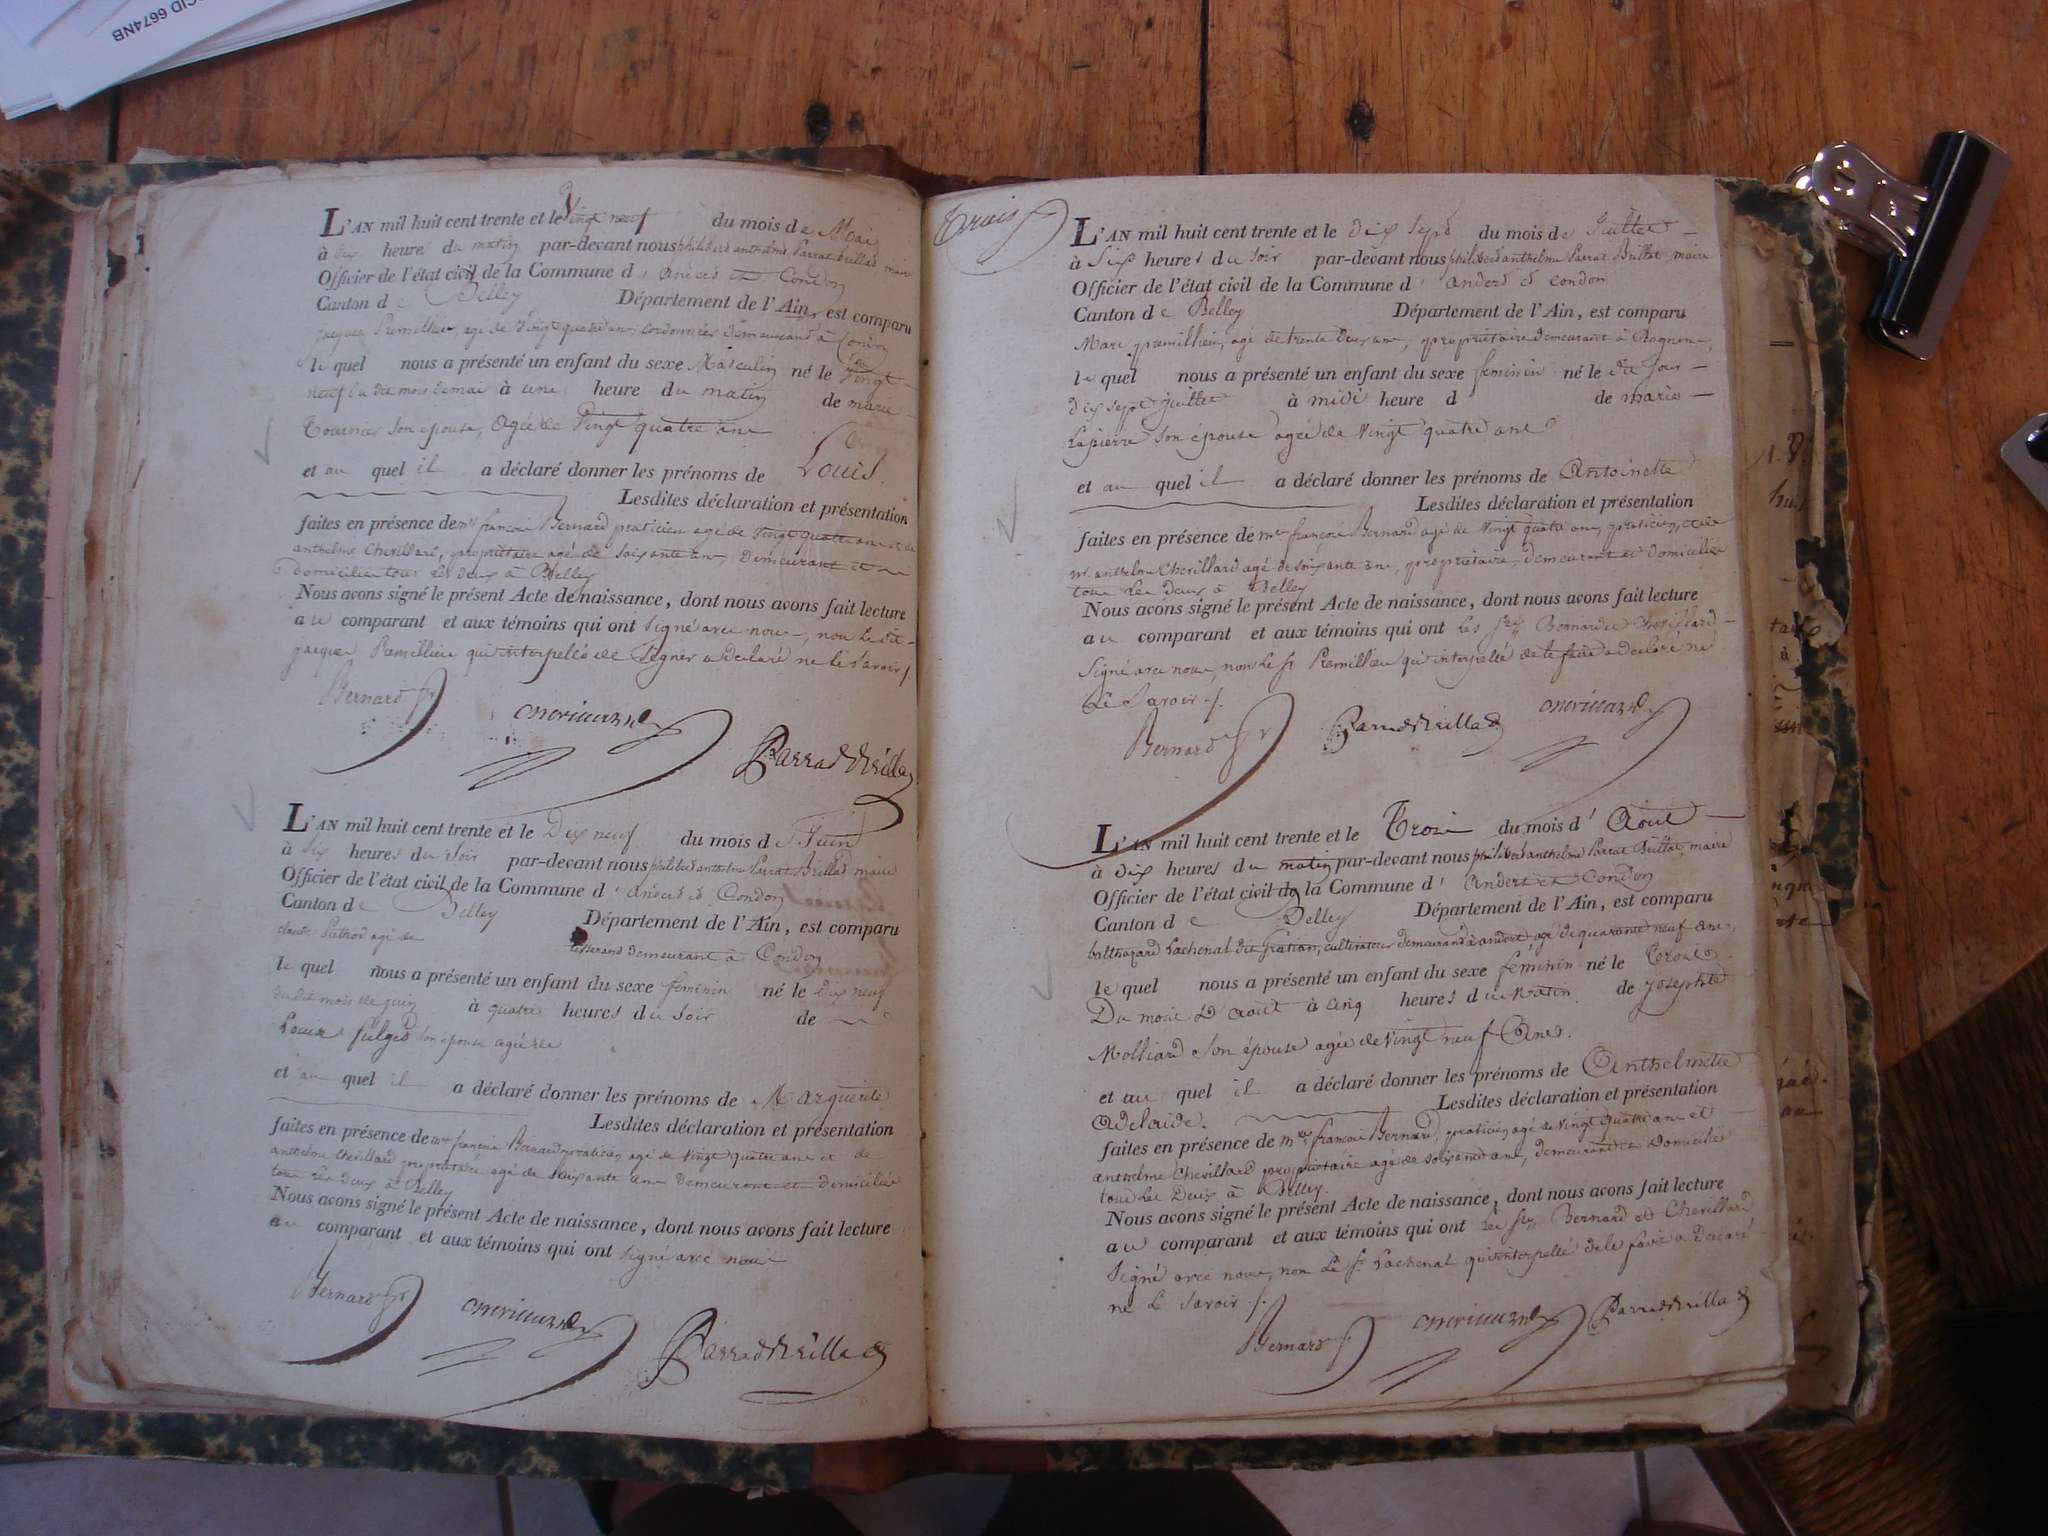 CID 6674NB
L'AN mil huit cent trente et le Vingt neuf du mois de Mai
à dix heures du matin par-devant nous philibert anthelme Parrat Brillat, maire
Officier de l'état civil de la Commune d' andert et Condon
Canton de Belley Département de l'Ain, est comparu
jacques Premillieu, agé de Vingt quatre ans, cordonnier demeurant à Condon
le quel nous a présenté un enfant du sexe Masculin né le Vingt
neuf du dit mois de mai à une heure du matin de marie
Tournier son épouse, agée de Vingt quatre ans
et au quel il a déclaré donner les prénoms de Louis.
Lesdites déclaration et présentation
faites en présence de mr françois Bernard praticien agé de Vingt quatre ans et de
anthelme Chevillard, propriétaire agé de soixante ans, demeurant et
domicilié tous les deux à Belley
Nous avons signé le présent Acte de naissance, dont nous avons fait lecture
au comparant et aux témoins qui ont signé avec nous, non le dit
jacques Premillieu qui interpellé de signer a declaré ne le savoir
Bernard
Chevillard
Parrat Brillat
L'AN mil huit cent trente et le Dix neuf du mois de Juin
à six heures du soir par-devant nous philibert anthelme Parrat Brillat maire
Officier de l'état civil de la Commune d' andert et Condon
Canton de Belley Département de l'Ain, est comparu
claude Puthod agé de tisserand demeurant à Condon
le quel nous a présenté un enfant du sexe feminin né le dix neuf
du dit mois de juin à quatre heures du soir de
Louise son épouse agée de
et au quel il a déclaré donner les prénoms de Marguerite
Lesdites déclaration et présentation
faites en présence de mr françois Bernard praticien agé de Vingt quatre ans et de
anthelme Chevillard propriétaire agé de soixante ans demeurant et domicilié
tous les deux à Belley
Nous avons signé le présent Acte de naissance, dont nous avons fait lecture
au comparant et aux témoins qui ont signé avec nous
Bernard
Chevillard
Parrat Brillat
Trois
L'AN mil huit cent trente et le dix sept du mois de Juillet
à Six heures du soir par-devant nous philibert anthelme Parrat Brillat, maire
Officier de l'état civil de la Commune d' andert et condon
Canton de Belley Département de l'Ain, est comparu
Marc premillieu, agé de trente deux ans, propriétaire demeurant à Rognon,
le quel nous a présenté un enfant du sexe feminin né le dit jour
dix sept juillet à midi heure d de marie
Lapierre son épouse agée de vingt quatre ans
et au quel il a déclaré donner les prénoms de Antoinette
Lesdites déclaration et présentation
faites en présence de mr françois Bernard agé de Vingt quatre ans, praticien, et de
mr anthelme Chevillard agé de soixante ans, propriétaire, demeurant et domicilié
tous les deux à Belley
Nous avons signé le présent Acte de naissance, dont nous avons fait lecture
au comparant et aux témoins qui ont les srs Bernard et Chevillard
Signé avec nous, non le sr Premillieu qui interpellé de le faire a declaré ne
Le Savoir
Bernard
Parrat Brillat
Chevillard
L'AN mil huit cent trente et le Trois du mois d' Août
à dix heures du matin par-devant nous philibert anthelme Parrat Brillat, maire
Officier de l'état civil de la Commune d' andert et Condon
Canton de Belley Département de l'Ain, est comparu
balthazard Lachenal dit cultivateur demeurant à andert, agé de quarante neuf ans,
le quel nous a présenté un enfant du sexe feminin né le Trois
Du mois d'août à cinq heures du Matin de josephte
Molliard Son épouse agée de Vingt neuf Ans.
et au quel il a déclaré donner les prénoms de Anthelmette
Adelaide. Lesdites déclaration et présentation
faites en présence de mr françois Bernard, praticien agé de Vingt quatre ans et
anthelme Chevillard propriétaire agé de soixante ans, demeurant et domicilié
tous les deux à Belley.
Nous avons signé le présent Acte de naissance, dont nous avons fait lecture
au comparant et aux témoins qui ont les srs Bernard et Chevillard
Signé avec nous, non Le sr Lachenal qui interpellé de le faire a declaré
ne le savoir
Bernard
Chevillard
Parrat Brillat